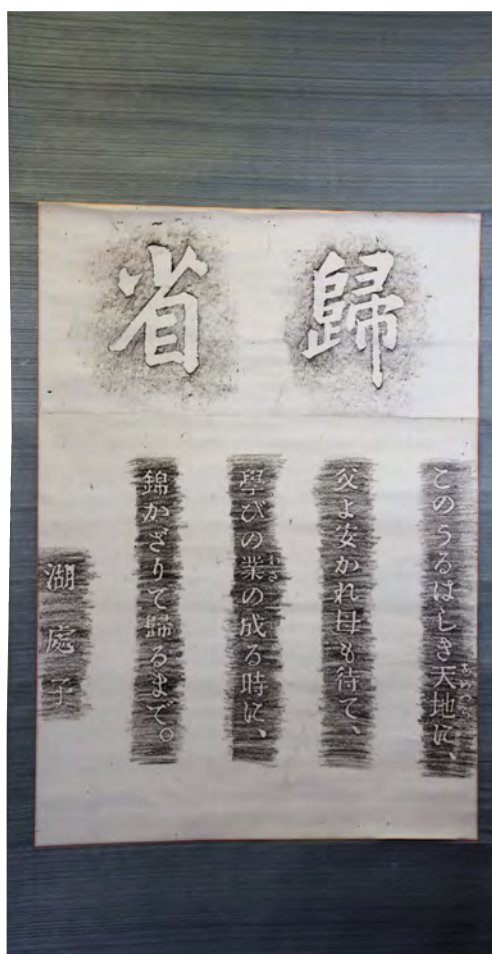 歸省
このうるはしき天地に、
父よ安かれ母も待て、
學びの業の成る時に、
錦かざりて歸るまで。
湖處子